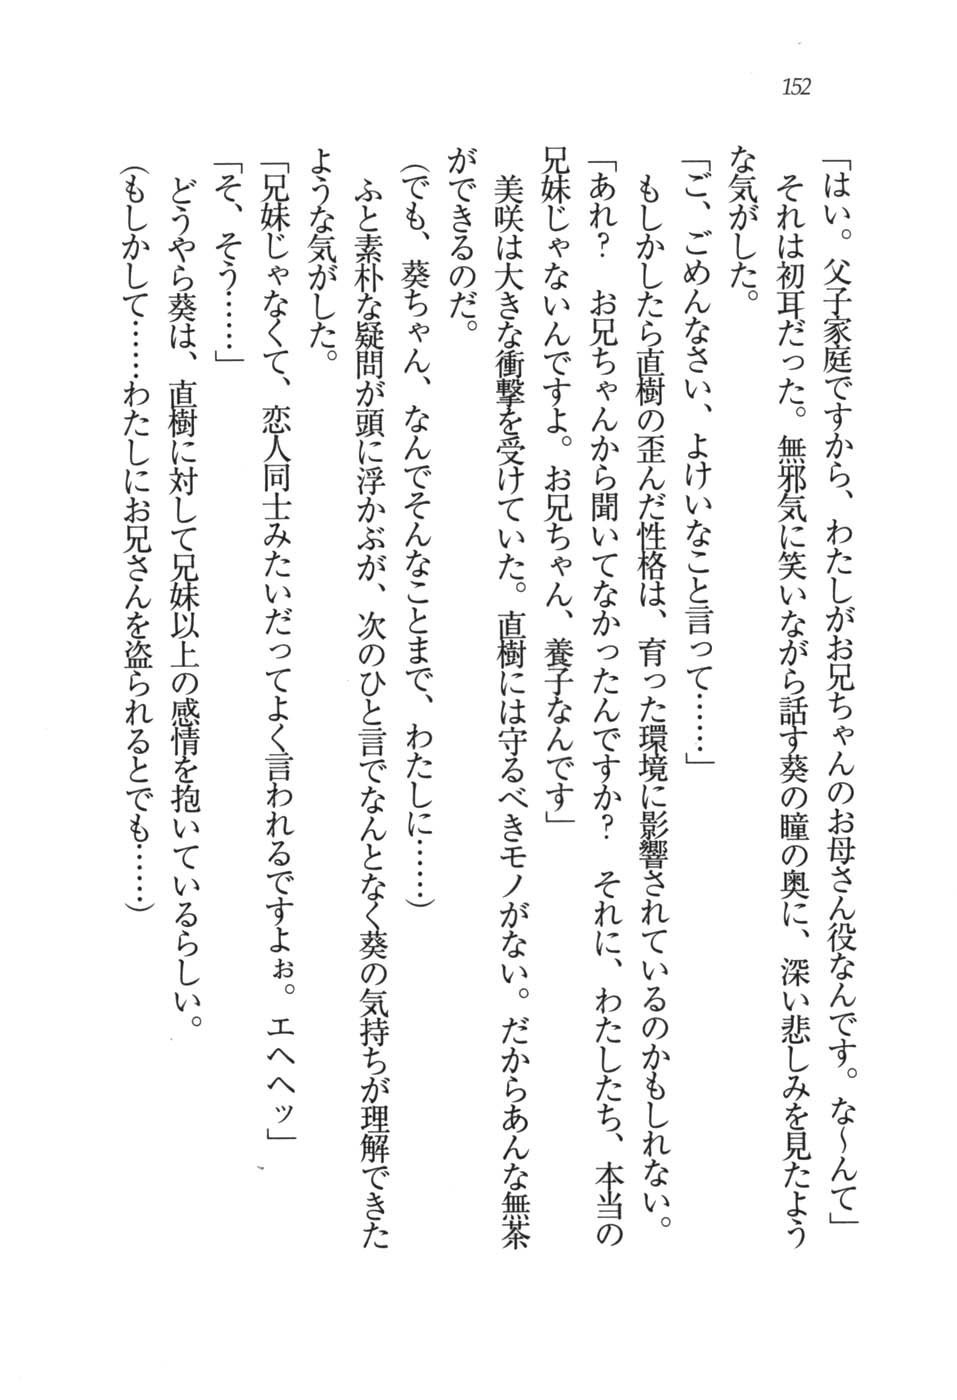 152
「はい。父子家庭ですから、わたしがお兄ちゃんのお母さん役なんです。な～んて」
それは初耳だった。無邪気に笑いながら話す葵の瞳の奥に、深い悲しみを見たよう
な気がした。
「ご、ごめんなさい、よけいなこと言って……」
もしかしたら直樹の歪んだ性格は、育った環境に影響されているのかもしれない。
「あれ？　お兄ちゃんから聞いてなかったんですか？　それに、わたしたち、本当の
兄妹じゃないんですよ。お兄ちゃん、養子なんです」
美咲は大きな衝撃を受けていた。直樹には守るべきモノがない。だからあんな無茶
ができるのだ。
（でも、葵ちゃん、なんでそんなことまで、わたしに……）
ふと素朴な疑問が頭に浮かぶが、次のひと言でなんとなく葵の気持ちが理解できた
ような気がした。
「兄妹じゃなくて、恋人同士みたいだってよく言われるですよぉ。エヘヘッ」
「そ、そう……」
どうやら葵は、直樹に対して兄妹以上の感情を抱いているらしい。
（もしかして……わたしにお兄さんを盗られるとでも……）